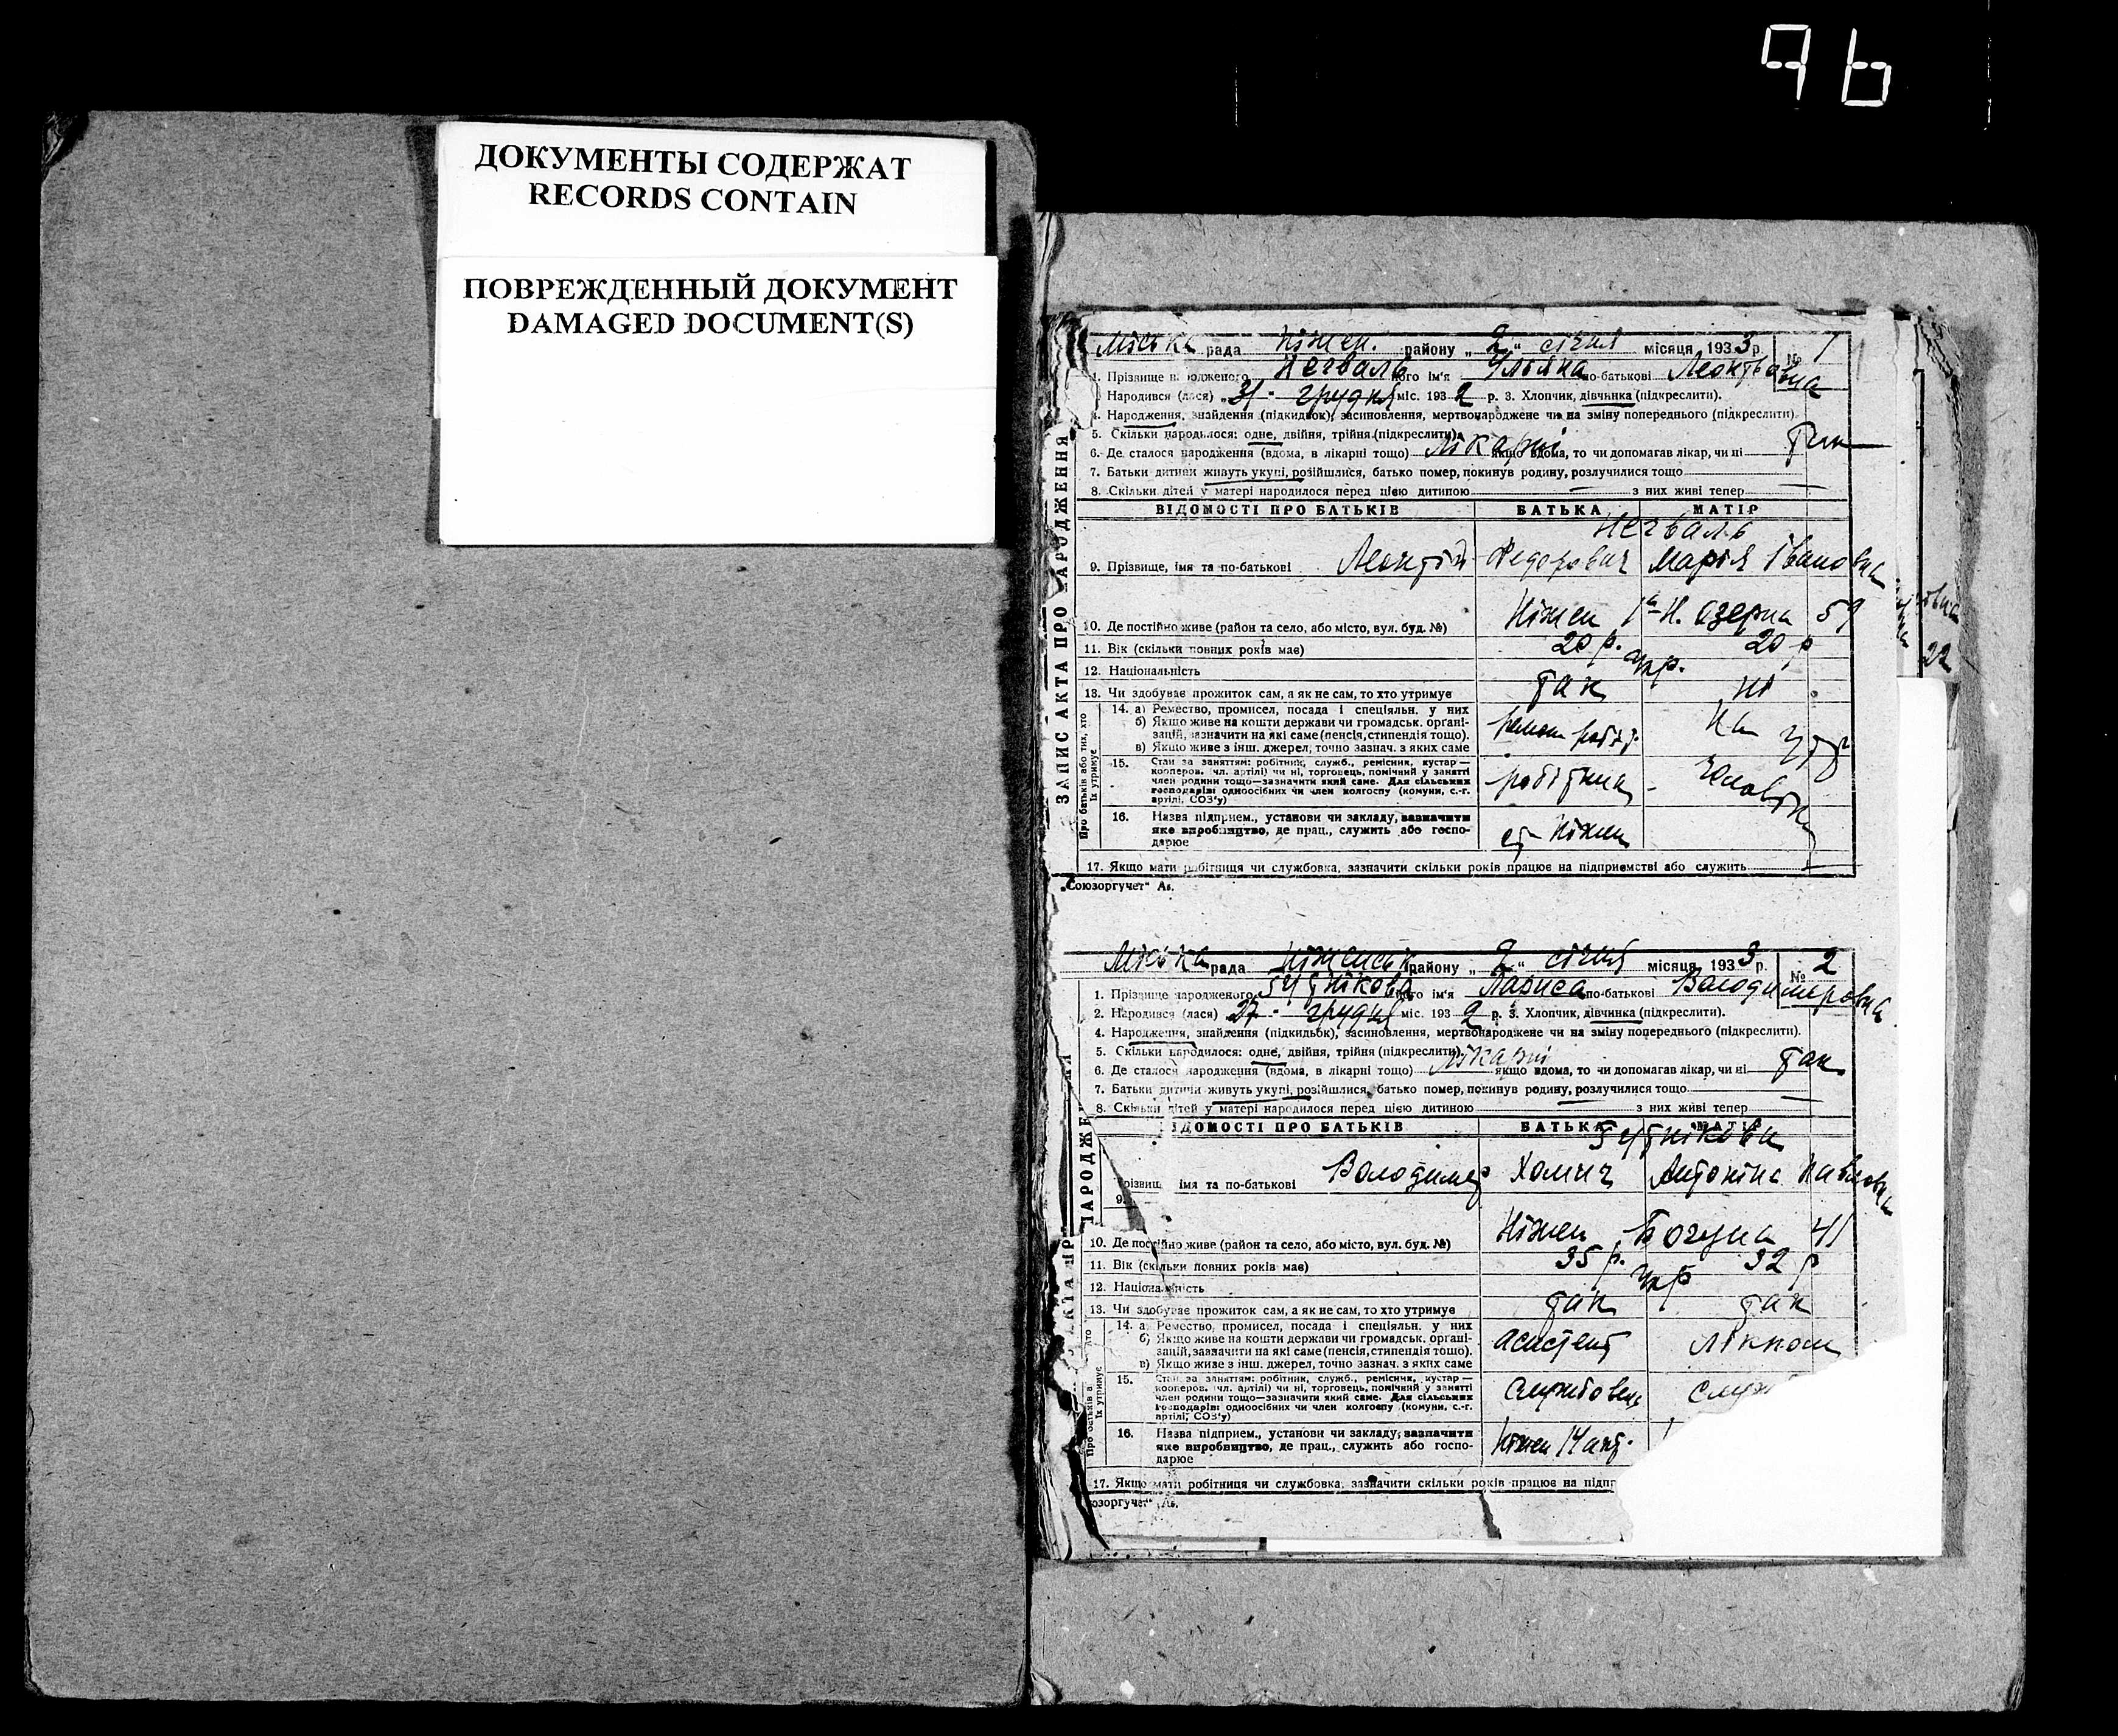 96
ДОКУМЕНТЫ СОДЕРЖАТ
RECORDS CONTAIN
ПОВРЕЖДЕННЫЙ ДОКУМЕНТ
DAMAGED DOCUMENT(S)
ЗАПИС АКТА ПРО НАРОДЖЕННЯ
Міська рада Ніжен. району „2“ січня місяця 1933 р. № 1
1. Прізвище народженого Негваль його ім'я Уляна по-батькові Леонтьівна
Народився (лася) „31“ грудня міс. 1932 р. 3. Хлопчик, дівчинка (підкреслити).
4. Народження, знайдення (підкидьок), засиновлення, мертвонароджене чи на зміну попереднього (підкреслити)
5. Скільки народилося: одне, двійня, трійня (підкреслити)
6. Де сталося народження (вдома, в лікарні тощо) лікарні якщо вдома, то чи допомагав лікар, чи ні так
7. Батьки дитини живуть укупі, розійшлися, батько помер, покинув родину, розлучилися тощо
8. Скільки дітей у матері народилося перед цією дитиною — з них живі тепер —
ВІДОМОСТІ ПРО БАТЬКІВ БАТЬКА МАТІР
Негваль
9. Прізвище, імя та по-батькові Леонтій Федорович Марія Івановна
10. Де постійно живе (район та село, або місто, вул. буд. №) Ніжен 1а Н. Озерна 59
11. Вік (скільки повних років має) 20 р. 20 р
12. Національність Укр.
13. Чи здобуває прожиток сам, а як не сам, то хто утримує так ні
Про батьків або тих, хто їх утримує
14. а) Ремество, промисел, посада і спеціяльн. у них
б) Якщо живе на кошти держави чи громадськ. органі-
зацій, зазначити на які саме (пенсія, стипендія тощо).
в) Якщо живе з інш. джерел, точно зазнач. з яких саме
На утр
15. Стан за заняттям: робітник, служб., ремісник, кустар —
кооперов. (чл. артілі) чи ні, торговець, помічний у занятті
член родини тощо—зазначити який саме. Для сільських
господарів: одноосібних чи член колгоспу (комуни, с.-г.
артілі, СОЗ'у)
робітник Чоловіка
16. Назва підприєм., установи чи закладу, зазначити
яке виробництво, де прац., служить або госпо-
дарює
ст Ніжен
17. Якщо мати робітниця чи службовка, зазначити скільки років працює на підприємстві або служить
„Союзоргучет“ Ав.
Міська рада Ніженськ району „2“ січня місяця 1933 р. № 2
1. Прізвище народженого його ім'я Лариса по-батькові Володимировна
2. Народився (лася) 27 грудня міс. 1932 р. 3. Хлопчик, дівчинка (підкреслити).
4. Народження, знайдення (підкидьок), засиновлення, мертвонароджене чи на зміну попереднього (підкреслити)
5. Скільки народилося: одне, двійня, трійня (підкреслити)
6. Де сталося народження (вдома, в лікарні тощо) лікарні якщо вдома, то чи допомагав лікар, чи ні так
7. Батьки дитини живуть укупі, розійшлися, батько помер, покинув родину, розлучилися тощо
8. Скільки дітей у матері народилося перед цією дитиною — з них живі тепер —
ВІДОМОСТІ ПРО БАТЬКІВ БАТЬКА МАТІР
9. Прізвищ імя та по-батькові Володимер Хомич Антоніна Павловна
10. Де постійно живе (район та село, або місто, вул. буд. №) Ніжен Богуна 41
11. Вік (скільки повних років має) 35 р. 32 р
12. Національність Укр
13. Чи здобуває прожиток сам, а як не сам, то хто утримує так так
14. а Ремество, промисел, посада і спеціяльн. у них
б) Якщо живе на кошти держави чи громадськ. органі-
зацій, зазначити на які саме (пенсія, стипендія тощо).
в) Якщо живе з інш. джерел, точно зазнач. з яких саме
асистент Лікпом
15. Стан за заняттям: робітник, служб., ремісник, кустар —
кооперов. (чл. артілі) чи ні, торговець, помічний у занятті
член родини тощо—зазначити який саме. Для сільських
господарів: одноосібних чи член колгоспу (комуни, с.-г.
артілі, СОЗ'у)
службовець служ
16. Назва підприєм., установи чи закладу, зазначити
яке виробництво, де прац., служить або госпо-
дарює
Ніжен 14 апт.
17. Якщо мати робітниця чи службовка, зазначити скільки років працює на підпр
юзоргучет“ Ав.